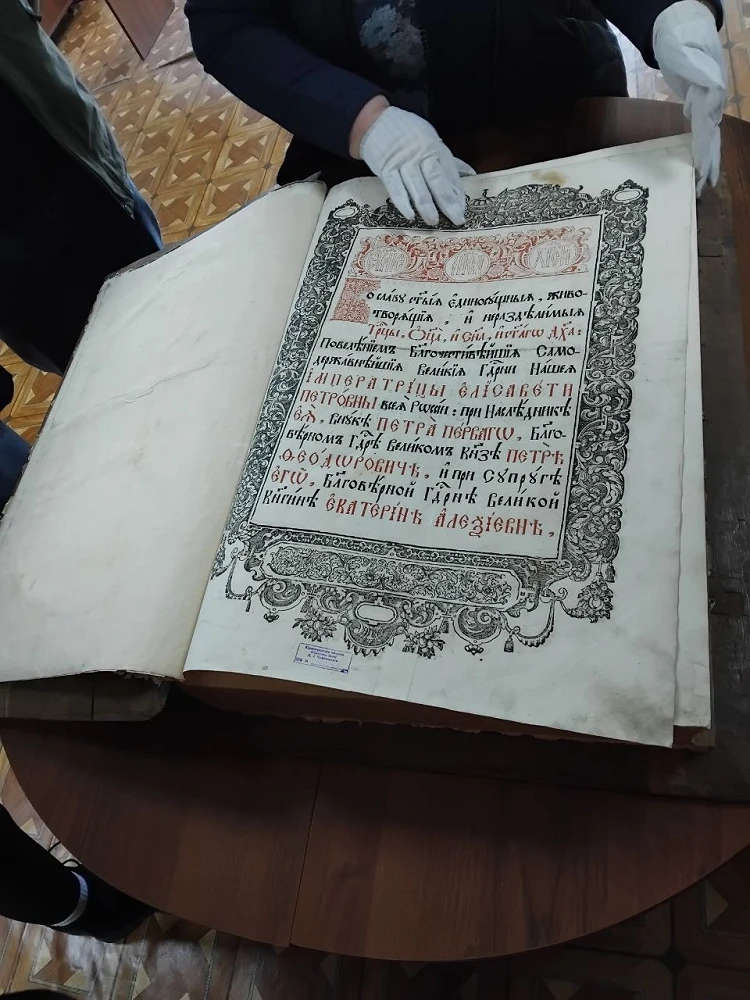 Во славу ст҃ыѧ Единосꙋщныѧ, живо-
творѧщїѧ, и нераздѣлимыѧ
Трⷪ҇цы, Ѻ҆ц҃а̀, и҆ Сн҃а, и҆ ст҃а́гѡ Дх҃а:
Повелѣнїемъ Бл҃гочестивѣйшїѧ Само-
державнѣйшїѧ Великїѧ Гдⷭ҇рни Нашеѧ
ІМПЕРАТРИЦЫ ЕЛІСАВЕТИ
ПЕТРОВНЫ всеѧ̀ Рѡссїи: при Наслѣдникѣ
Еѧ̀, Внꙋкѣ ПЕТРА̀ ПЕРВАГѠ, Бл҃го-
вѣрномъ Гдⷭ҇рѣ Великомъ Кн҃зѣ ПЕТРѢ
ѲЕОДѠРОВИЧѢ, и҆ при Сꙋпрꙋгѣ
ЕГѠ̀, Бл҃говѣрной Гдⷭ҇рнѣ Великой
Кн҃гинѣ ЕКАТЕРІНѢ АЛЕѮІЕВНѢ,